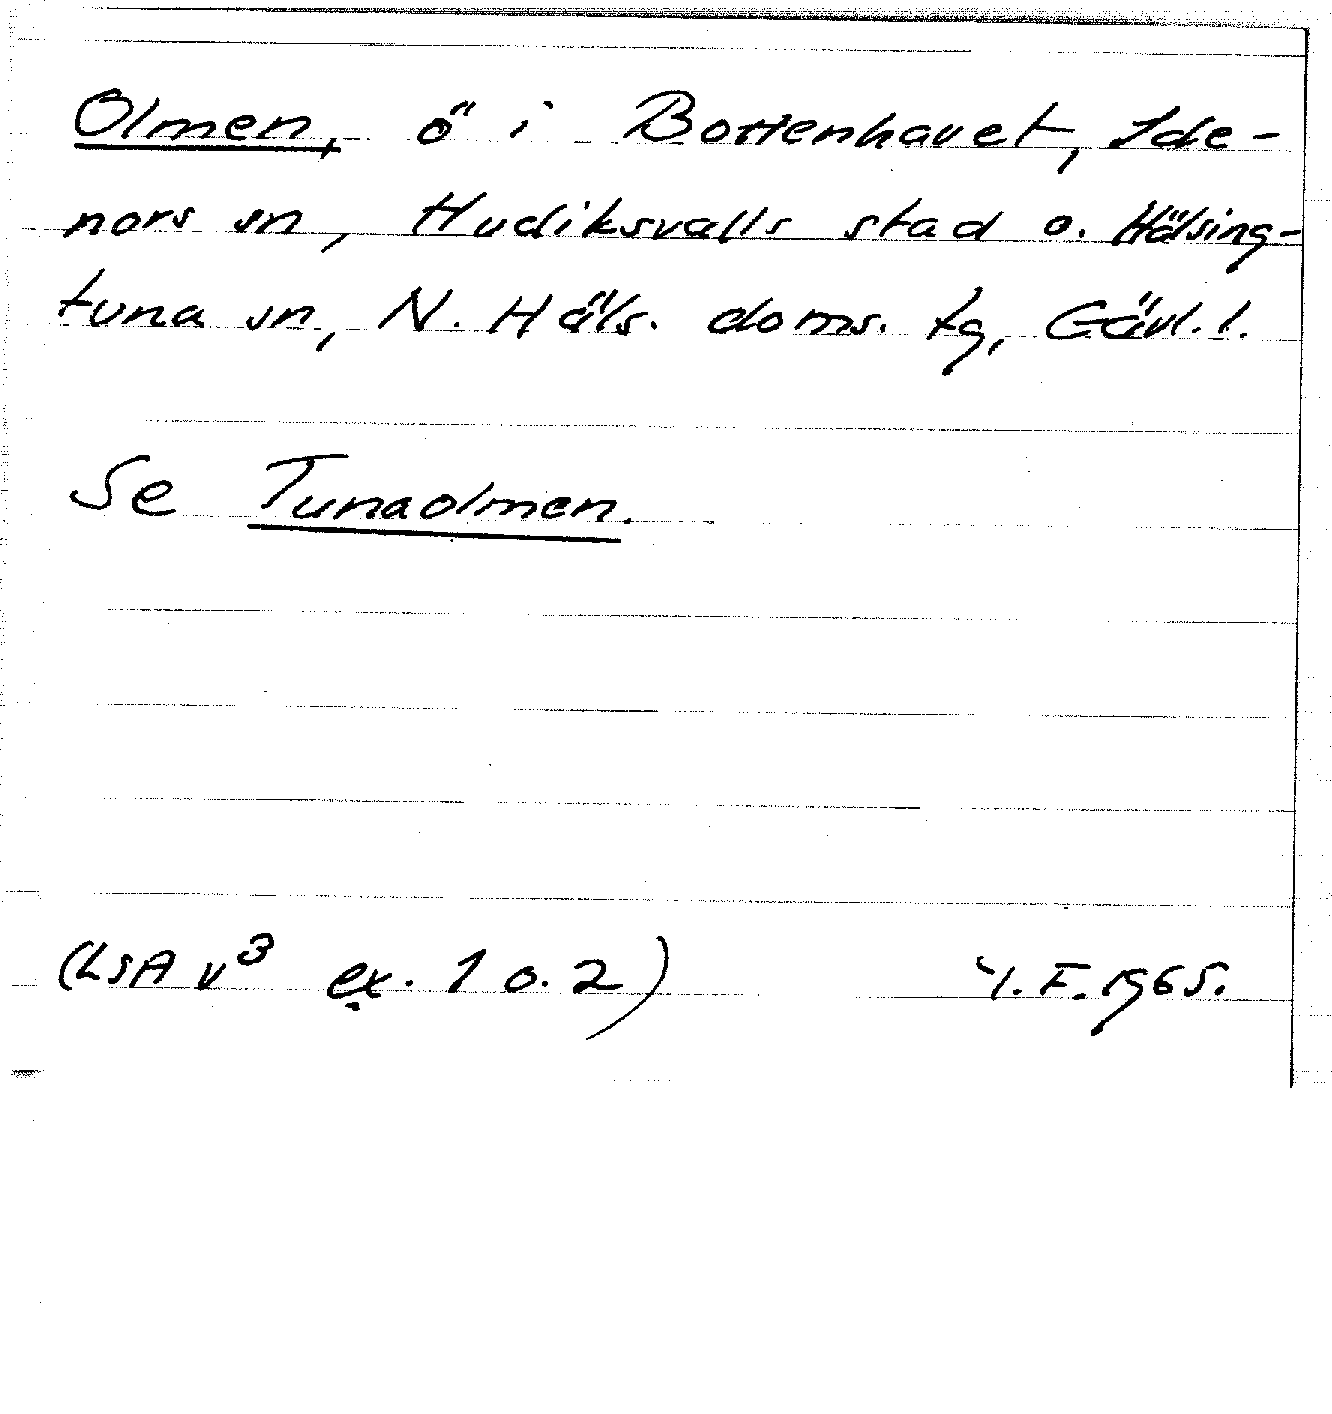 Olmen, ö i Bottenhavet, Ide-
nors sn, Hudiksvalls stad o. Hälsing-
tuna sn, N. Häls. doms. tg, Gävl. l.
Se Tunaolmen.
(LSA v³ ex. 1 o. 2) Y. F. 1965.